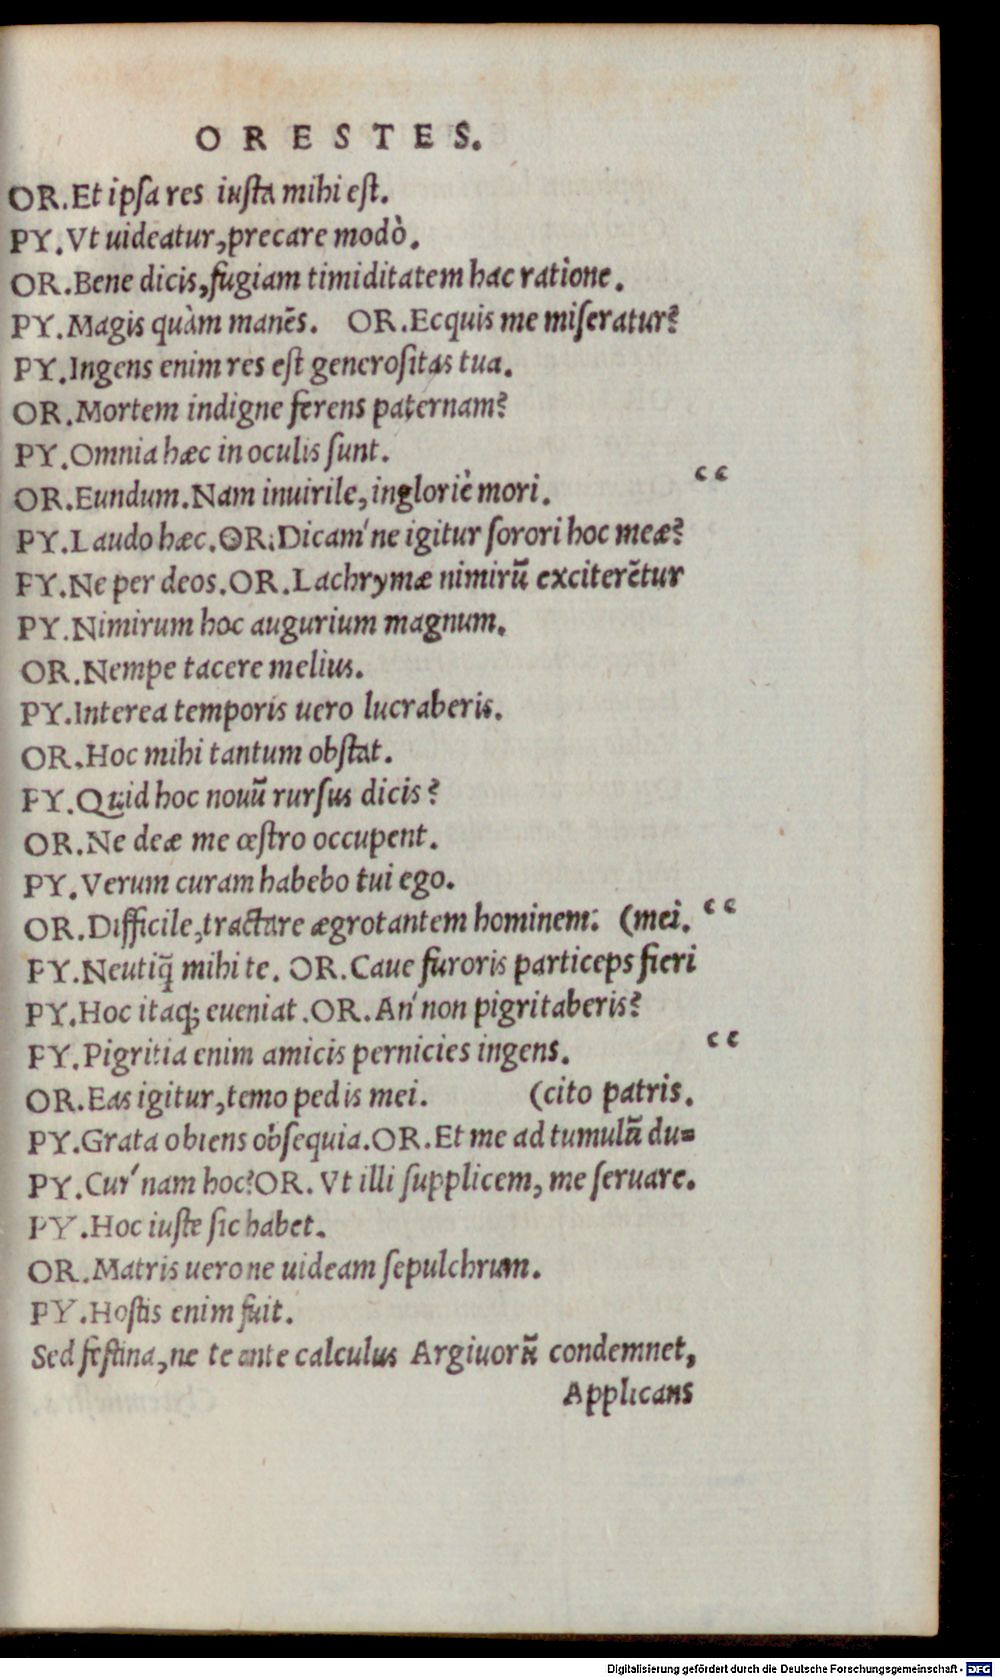 ORESTES.
OR.Et ipſa res iuſta mihi eſt.
PY.Vt uideatur,precare modò.
OR.Bene dicis,fugiam timiditatem hac ratione.
PY.Magis quàm manēs. OR.Ecquis me miſeratur?
PY.Ingens enim res eſt generoſitas tua.
OR.Mortem indigne ferens paternam?
PY.Omnia hæc in oculis ſunt.
OR.Eundum.Nam inuirile,inglorièmori. “
PY.Laudo hæc.OR.Dicam'ne igitur ſorori hoc meæ?
PY.Ne per deos.OR.Lachrymæ nimirū exciterētur
PY.Nimirum hoc augurium magnum.
OR.Nempe tacere melius.
PY.Interea temporis uero lucraberis.
OR.Hoc mihi tantum obſtat.
PY.Quid hoc nouū rurſus dicis?
OR.Ne deæ me œſtro occupent.
PY.Verum curam habebo tui ego.
OR.Difficile,tractare ægrotantem hominem: (mei. “
PY.Neutiq̃ mihi te. OR.Caue furoris particeps fieri
PY.Hoc itaq; eueniat.OR.An'non pigritaberis?
PY.Pigritia enim amicis pernicies ingens. “
OR.Eas igitur,temo pedis mei. (cito patris.
PY.Grata obiens obſequia.OR.Et me ad tumulū du=
PY.Cur'nam hoc?OR.Vt illi ſupplicem, me ſeruare.
PY.Hoc iuſte ſic habet.
OR.Matris uero ne uideam ſepulchrum.
PY.Hoſtis enim fuit.
Sed feſtina,ne te ante calculus Argiuorū condemnet,
Applicans
Digitalisierung gefördert durch die Deutsche Forschungsgemeinschaft - DFG